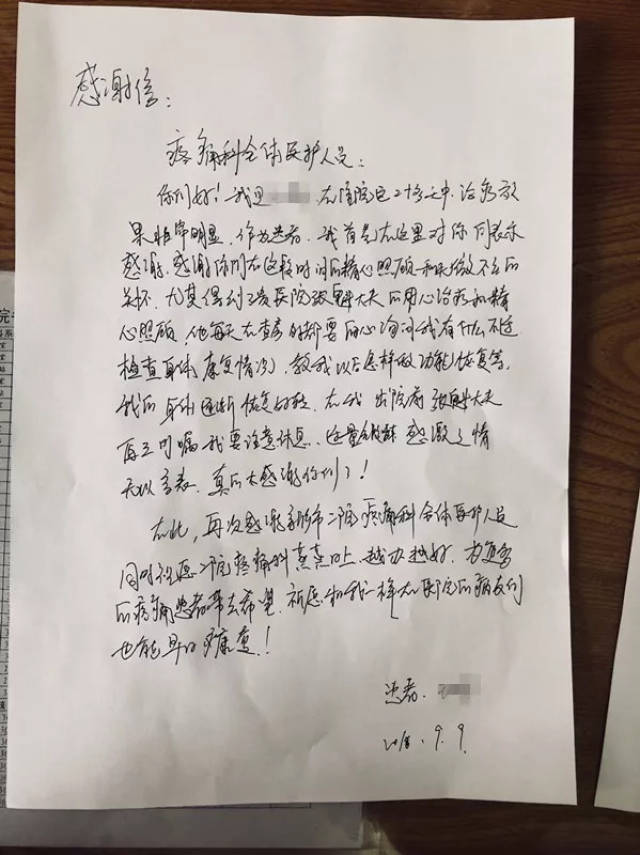 感谢信：
疼痛科全体医护人员：
你们好！我是 在住院已20多天中，治疗效
果非常明显，作为患者，我首先在这里对你们表示
感谢，感谢你们在这段时间的精心照顾和无微不至的
关怀，尤其得到 医院张 大夫的用心治疗和精
心照顾，他每天在查房时都要用心询问我有什么不适
检查身体康复情况，教我以后怎样做功能恢复等，
我的身体逐渐恢复好转，在我出院前张 大夫
再三叮嘱我要注意休息， 感激之情
无以言表，真的太感谢你们了！
在此，再次感谢 市二院疼痛科全体医护人员
同时祝愿二院疼痛科蒸蒸日上，越办越好，为更多
的疼痛患者带去希望，祈愿和我一样在医院的病友们
也能早日康复！
患者：
2018.9.9